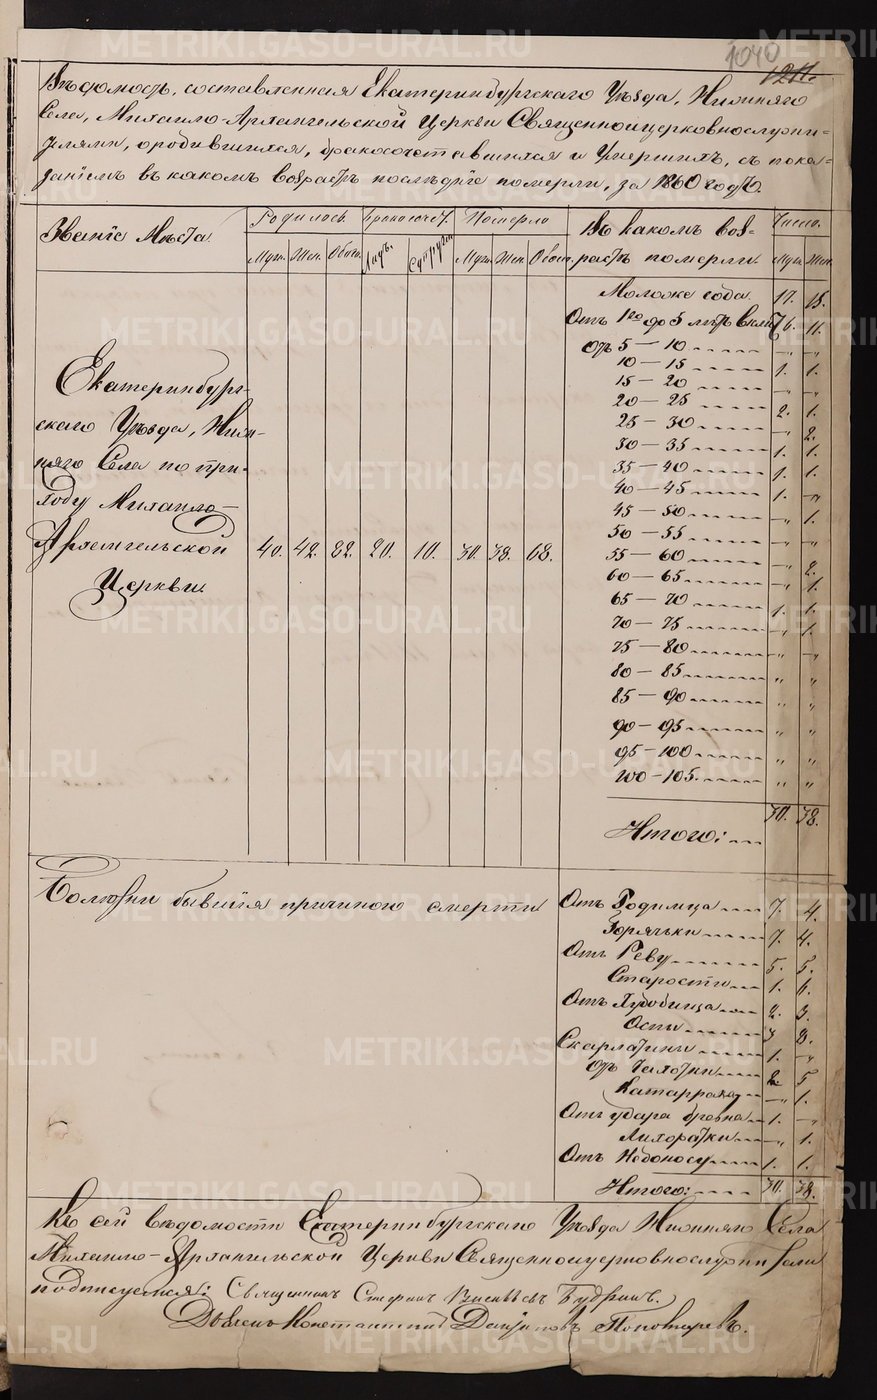 1040
1211.
Вѣдомость, составленная Екатеринбургскаго Уѣзда, Нижняго
Села, Михаило-Архангельской Церкви Священноицерковнослужи-
телями, о родившихся, бракосочетавшихся и Умершихъ, съ пока-
заніемъ въ какомъ возрастѣ послѣдніе померли, за 1860 годъ.
Званіе Мѣста. Родилось. Бракосочет. Померло Въ какомъ воз- Число.
Муж. Жен. Обоего. Лицъ. Супруж. Муж. Жен. Обоег. растѣ померли. Муж. Жен.
Моложе года. 17. 15.
Отъ 1го до 5 лѣтъ включ. 6. 11.
отъ 5 — 10 — „ — „
10 — 15 1. 1.
15 — 20 — „ — „
20 — 25 2. 1.
25 — 30 — „ 2.
30 — 35 1. 1.
35 — 40 1. 1.
40 — 45 1. — „
45 — 50 „ 1.
50 — 55 — „ — „
55 — 60 — „ 2.
60 — 65 „ 1.
65 — 70 1. 1.
70 — 75 — „ 1.
75 — 80 „ — „
80 — 85 „ „
85 — 90 „ „
90 — 95 „ „
95 — 100 „ „
100 — 105. „ „
Итого: 30. 38.
Екатеринбург-
скаго Уѣзда, Ниж-
няго Села по при-
ходу Михаило-
Архангельской 40. 42. 82. 20. 10. 30. 38. 68.
Церкви.
Болѣзни бывшія причиною смерти
Отъ Родимца 7. 4.
Горячьки 7. 4.
Отъ Реву 5. 5.
Старости 1. 6.
Отъ Худобища 2. 3.
Оспы 3 8.
Скарлатины 1. — „
отъ Чахотки 2. 5
Катарра — „ 1.
Отъ удара бревна 1. — „
Лихорадки — „ 1.
Отъ Недоносу 1. 1.
Итого: 30. 38.
Къ сей вѣдомости Екатеринбургскаго Уѣзда Нижняго Села
Михаило-Архангельской Церкви Священноицерковнослужители
подписуемся: Священникъ Стефанъ Будринъ.
Дьячекъ Константинъ Пономаревъ.
METRIKI.GASO-URAL.RU